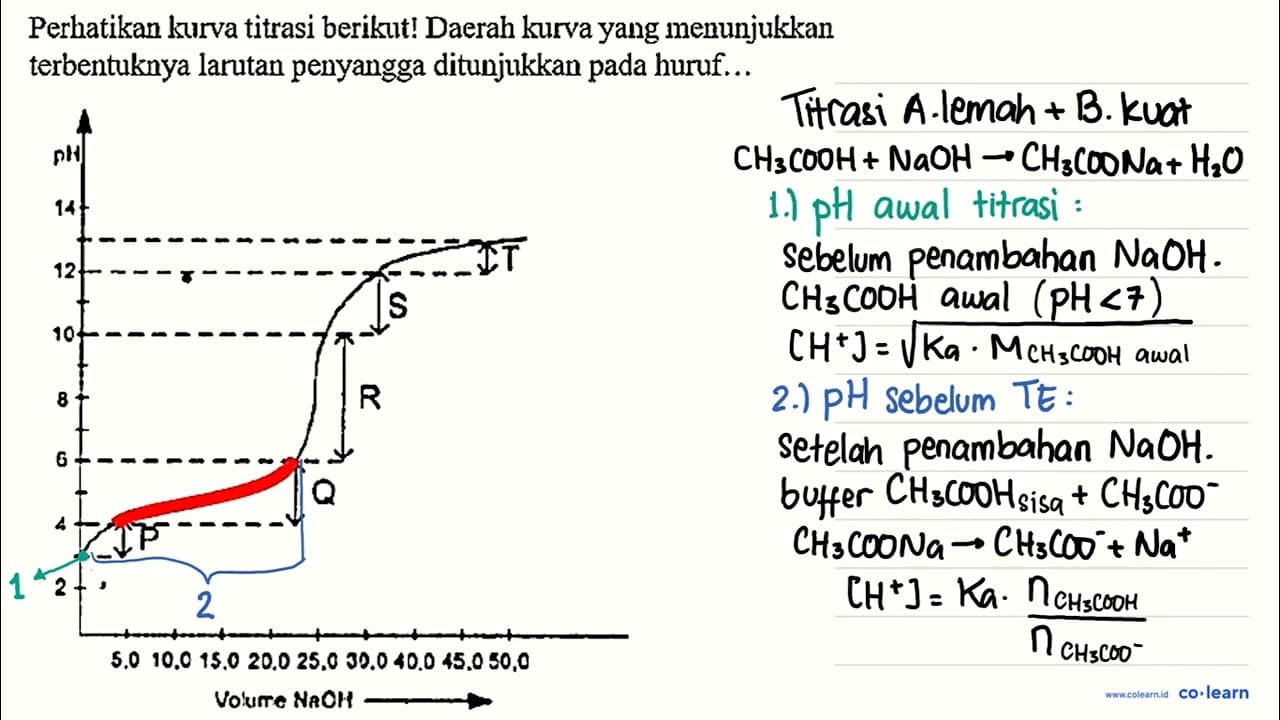 Perhatikan kurva titrasi berikut! Daerah kurva yang menunjukkan
terbentuknya larutan penyangga ditunjukkan pada huruf...
pH
14
12
10
8
6
4
2
T
S
R
Q
P
1
2
5,0 10,0 15,0 20,0 25,0 30,0 40,0 45,0 50,0
Volume NaOH
Titrasi A.lemah + B. kuat
CH₃COOH + NaOH → CH₃COONa + H₂O
1.) pH awal titrasi :
Sebelum penambahan NaOH.
CH₃COOH awal (pH < 7)
[H⁺] = √Ka · M CH₃COOH awal
2.) pH sebelum TE :
Setelah penambahan NaOH.
buffer CH₃COOH sisa + CH₃COO⁻
CH₃COONa → CH₃COO⁻ + Na⁺
[H⁺] = Ka · n CH₃COOH
n CH₃COO⁻
www.colearn.id co·learn